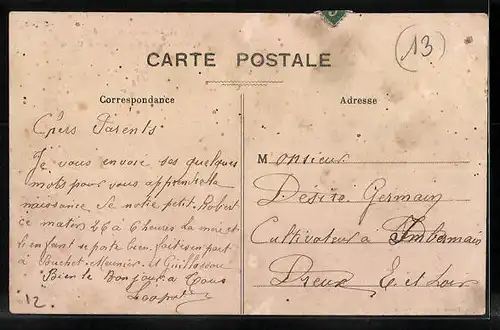 CARTE POSTALE
13
Correspondance
Adresse
Chers Parents
Je vous envoie ses quelques
mots pour vous apprendre la
naissance de notre petit Robert
ce matin 26 à 6 heures la mère et
l'enfant se porte bien faites en part
à Bouchet Meunier et Guillosson
Bien le Bonjour à Tous
12
Monsieur
Désiré Germain
Cultivateur à
Dreux E et Loir